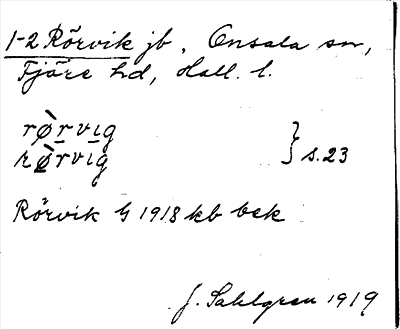 1-2 Rörvik jb, Onsala sn,
Fjäre hd, Hall. l.
rørvig
rørvig } s. 23
Rörvik 1918 kb bek
J. Sahlgren 1919